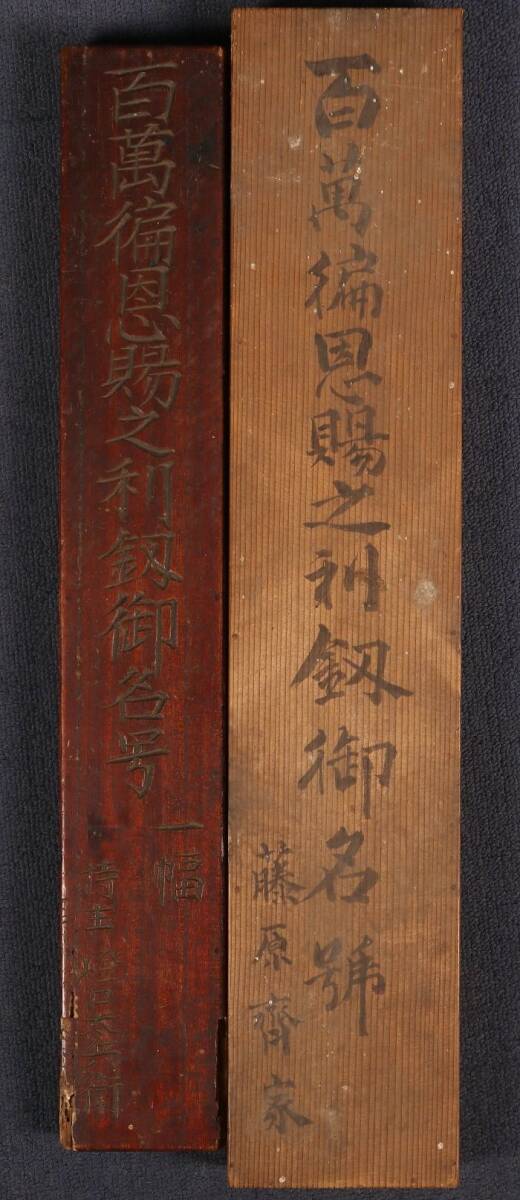 百萬徧恩賜之利釼御名號
藤原齊家
百萬徧恩賜之利釼御名号
一幅
持主